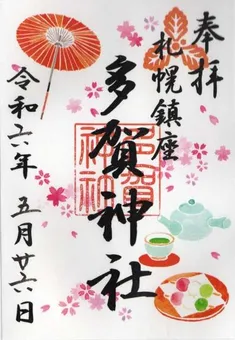 奉拝
札幌鎮座
多賀神社
令和六年 五月廿六日